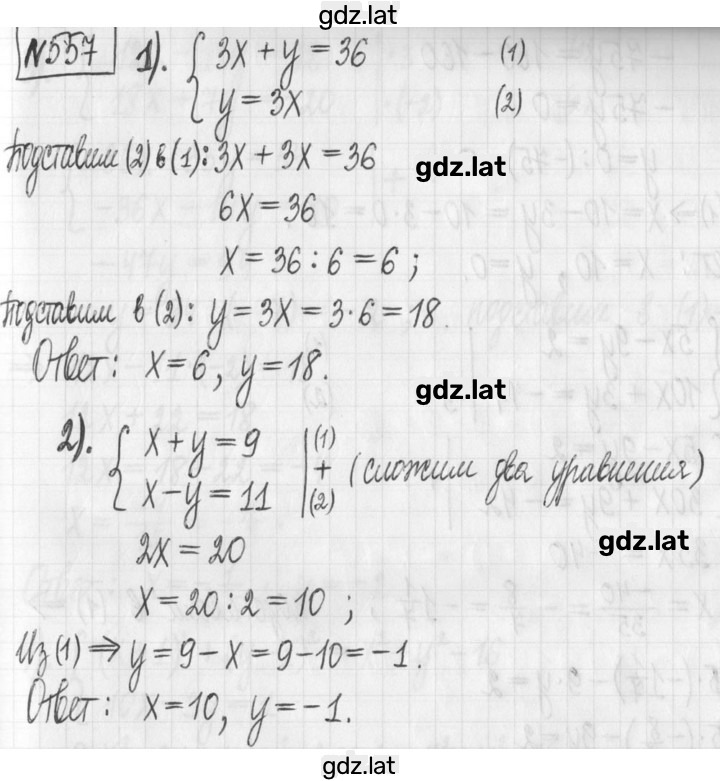 gdz.lat
№557 1). { 3x + y = 36 (1)
y = 3x (2)
Подставим (2) в (1): 3x + 3x = 36
gdz.lat
6x = 36
x = 36 : 6 = 6 ;
Подставим в (2): y = 3x = 3·6 = 18.
Ответ: x = 6, y = 18.
gdz.lat
2). { x + y = 9 | (1)
x − y = 11 | + (2) (сложим два уравнения)
2x = 20
gdz.lat
x = 20 : 2 = 10 ;
Из (1) ⇒ y = 9 − x = 9 − 10 = −1.
Ответ: x = 10, y = −1.
gdz.lat